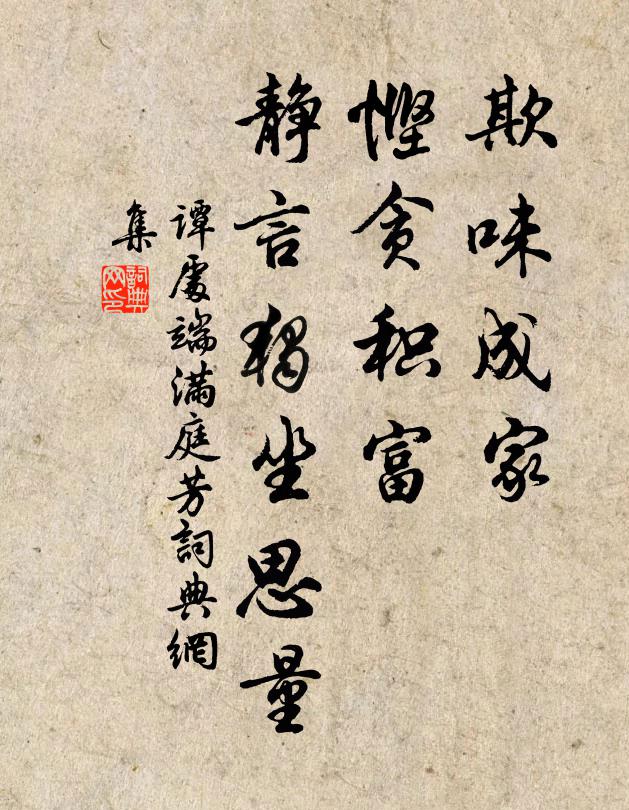 欺味成家
悭贪积富
静言独坐思量
谭處端满庭芳詞典網
集
詞典网印